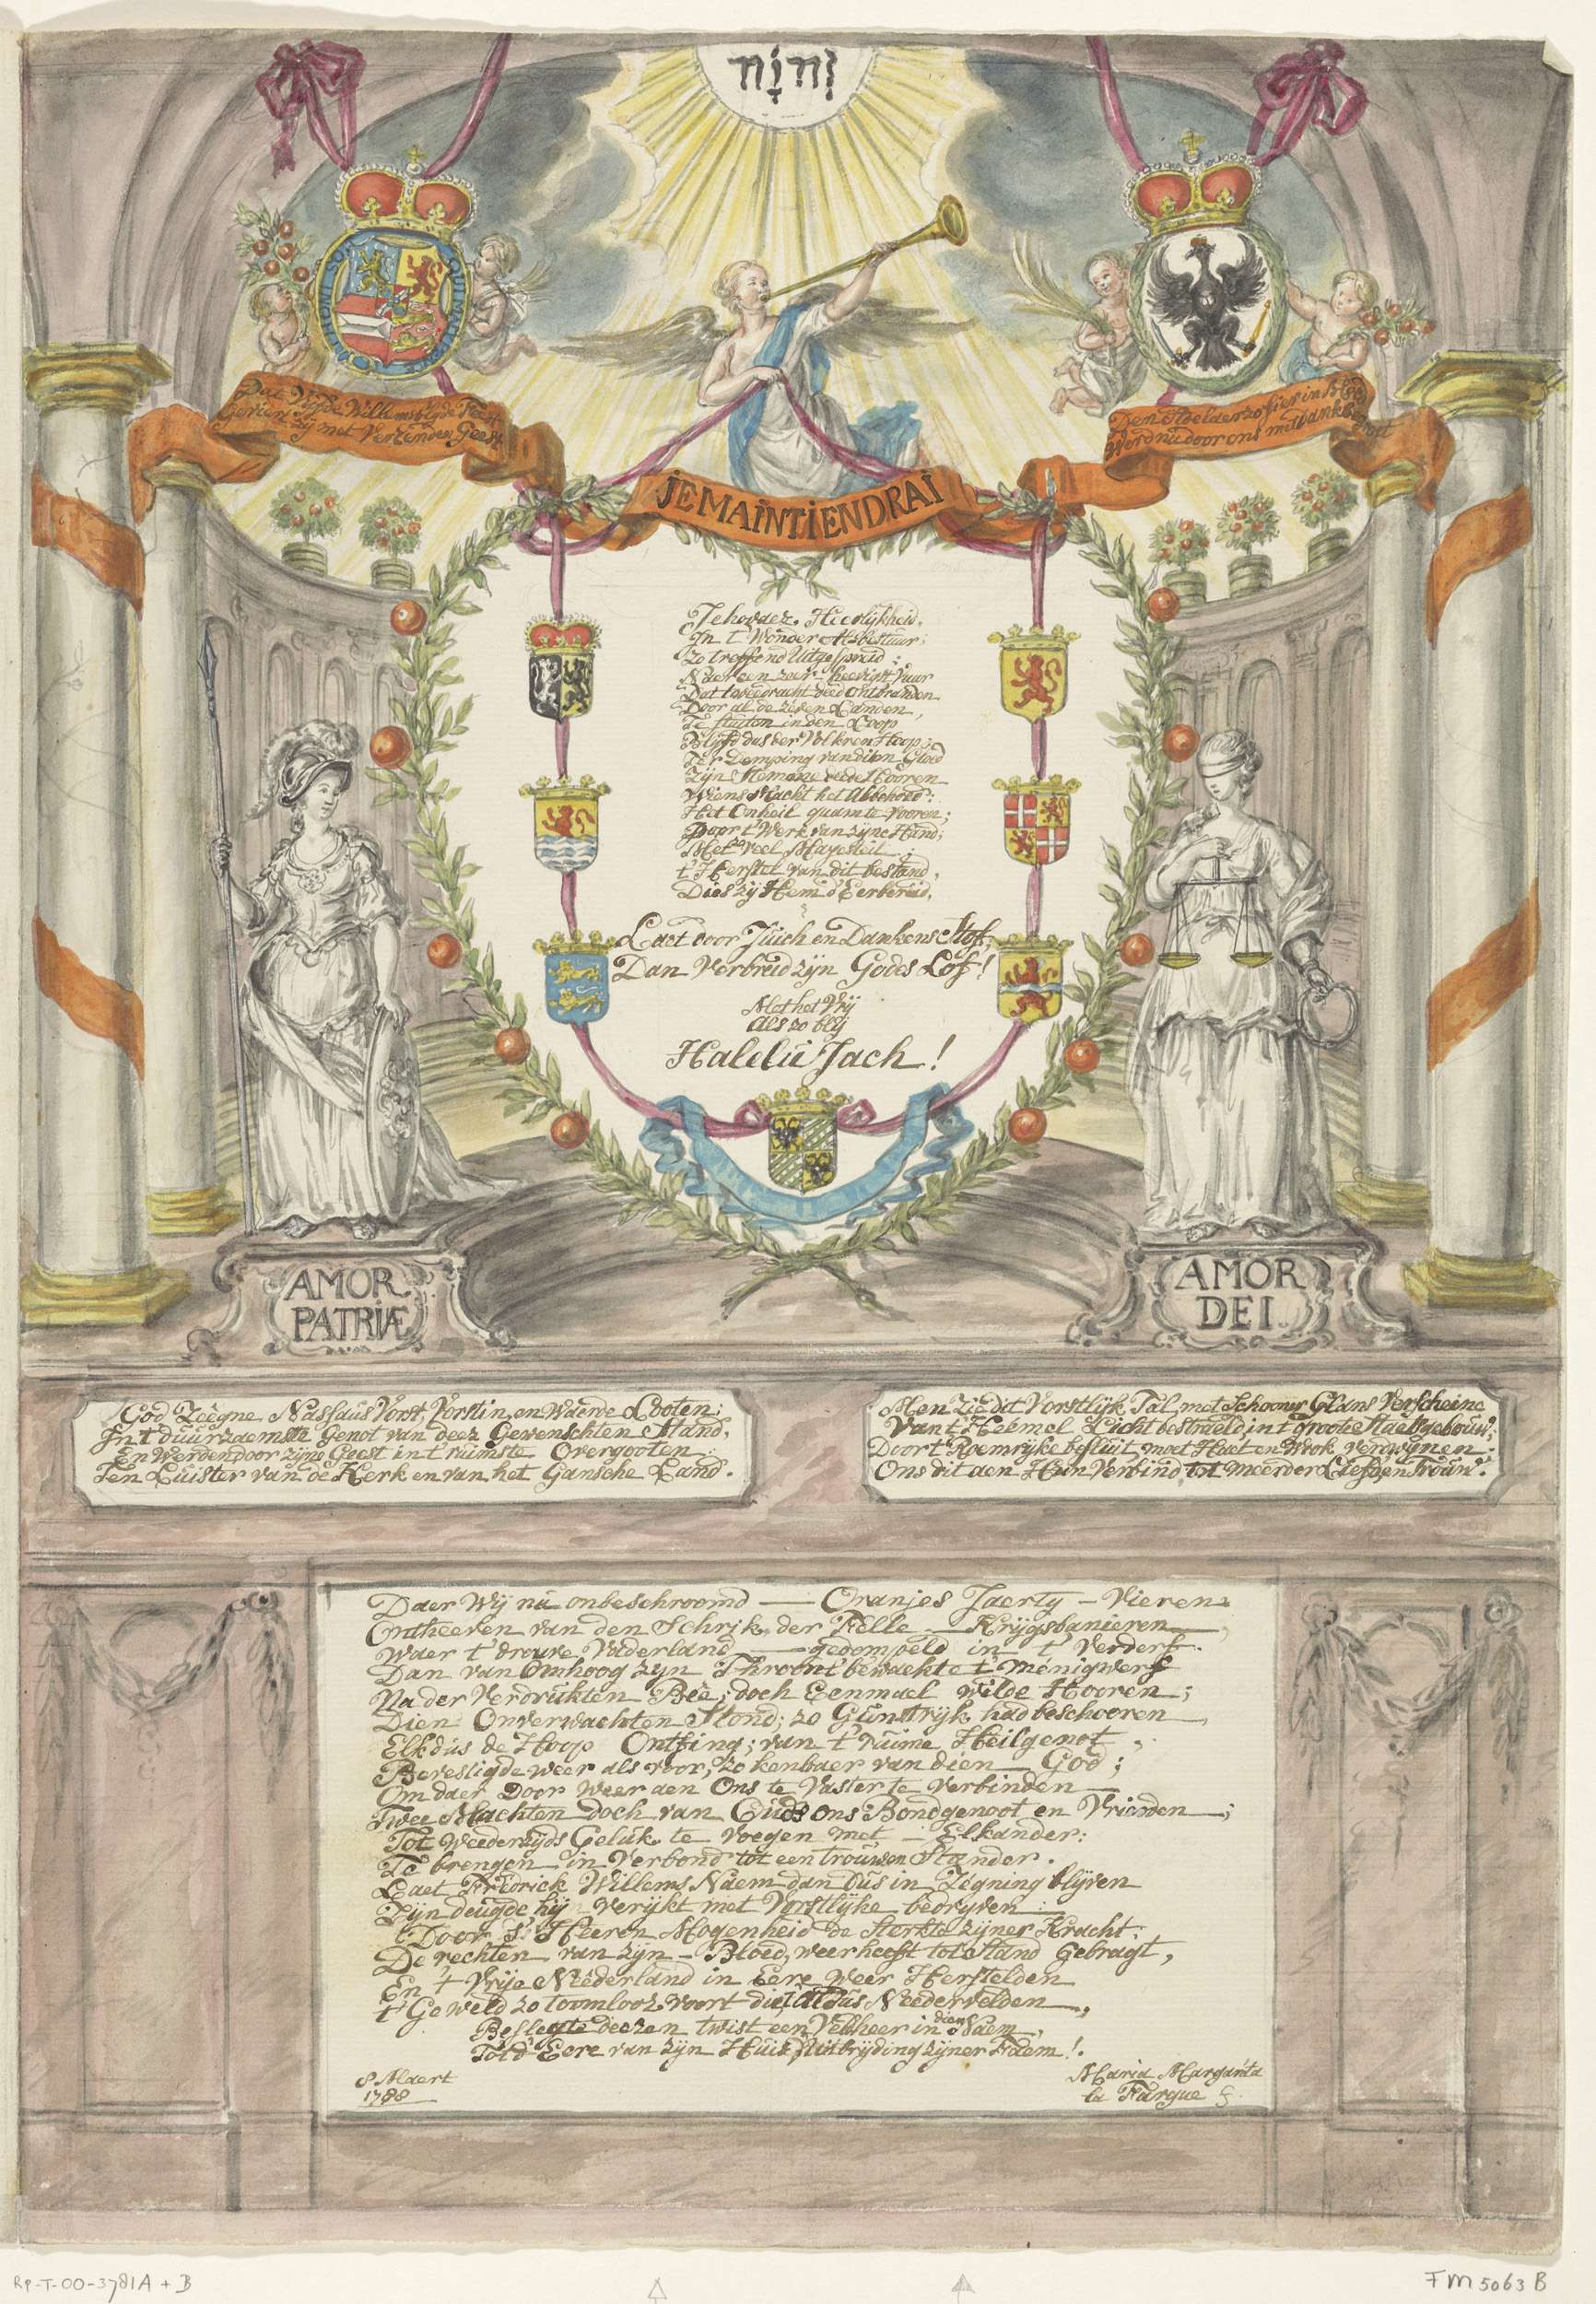 יהוה
HONI SOIT QUI MAL Y
Dat Vijfde Willems blijde Feest
Gevierd zij met Verheuden Geest
Den Held zo fier in
Werd nu door ons met dankb
JE MAINTIENDRAI
Jehovaez. Heerlijkheid,
In t' Wonder Albestuur;
Zo treffend Uitgespreid;
Naer een zeer heevig Vuur
Dat tweedracht deed Ontbranden
Door al de zeven Landen,
Te stuiten in den Loop
Blijft dus der Volkren Hoop;
Ter Demping van dien Gloed
Zijn Stemme deede Hooren
Wiens Macht het Albehoed:
Het Onheil quam te vooren;
Door t' Werk van Zijne Hand;
Met zo veel Mayesteit;
t' Herstel van dit bestand,
Dies zij Hem d' Eer bereid,
Laet door Juich en Dankens Stoff,
Dan Verbreid zijn Godes Loff!
Met het Vrij
Als zo blij
Halelu Jach!
AMOR
PATRIÆ
AMOR
DEI
God Zeegne Nassaus Vorst, Vorstin, en Waerde Looten;
In t' duurzaemste Genot van deez Gewenschten Stand,
En Werden door zijns Geest in t' ruimste Overgooten:
Ten Luister van de Kerk en van het Gansche Land.
Men zie dit Vorstlijk Tal met Schooner Glans Verscheine
Van t' Heemel Licht bestraeld in t' groote Staetsgebouw;
Door t' Roemrijke besluit moet Haet en Wrok verdwynen:
Ons dit aen Hun Verbind tot meerder Liefd en Trouw.
Daer Wij nu onbeschroomd — Oranjes Jaerty - Vieren
Ontheeven van den Schrik, der Felle — Krijgsbanieren
Waer t' droeve Vaderland — gedompeld in t' Verderf.
Dan van Omhoog zijn Throon t' bewaekte t' menigwerf
Na der Verdrukten Beê; doch Eenmael wilde Hooren;
Dien Onverwachten Stond; zo Gunstrijk had beschooren
Elk dus de Hoop Ontfing; van t' ruime Heilgenot,
Bevestigde weer als voor, zo kenbaer van dien God;
Om daer Door Weer aen Ons te Vaster te Verbinden
Twee Machten doch van Ouds ons Bondgenoot en Vrienden;
Tot weederzijds Geluk te voegen met - Elkander:
Te brengen in Verbond tot een trouwen Stander.
Laet Fredrick Willems Naem dan dus in Zegning blijven
Zijn deugde hij verrijkt met Vorstlijke bedryven
Door S' Heeren Mogenheid de Sterkte zijner Kracht:
De rechten van zijn - Bloed, weer heeft tot Stand Gebragt,
En t Vrije Neederland in Eere Weer Herstelden
t' Geweld zo toomloos voort dus Needervelden,
Beslegte deezen twist een Veldheer in dien Naem,
Tot d' Eere van zijn Huis, Uitbrijding zijner Faem!
8 Maert
1788
Maria Margarita
la Fargue f.
RP-T-00-3781A + B
FM 5063 B